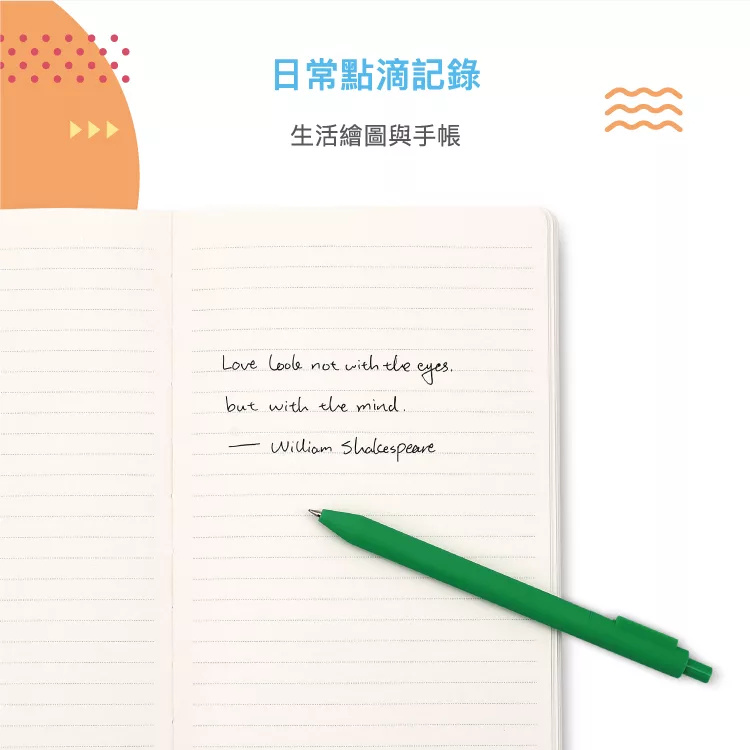 日常點滴記錄
生活繪圖與手帳
Love look not with the eyes.
but with the mind.
— William Shakespeare